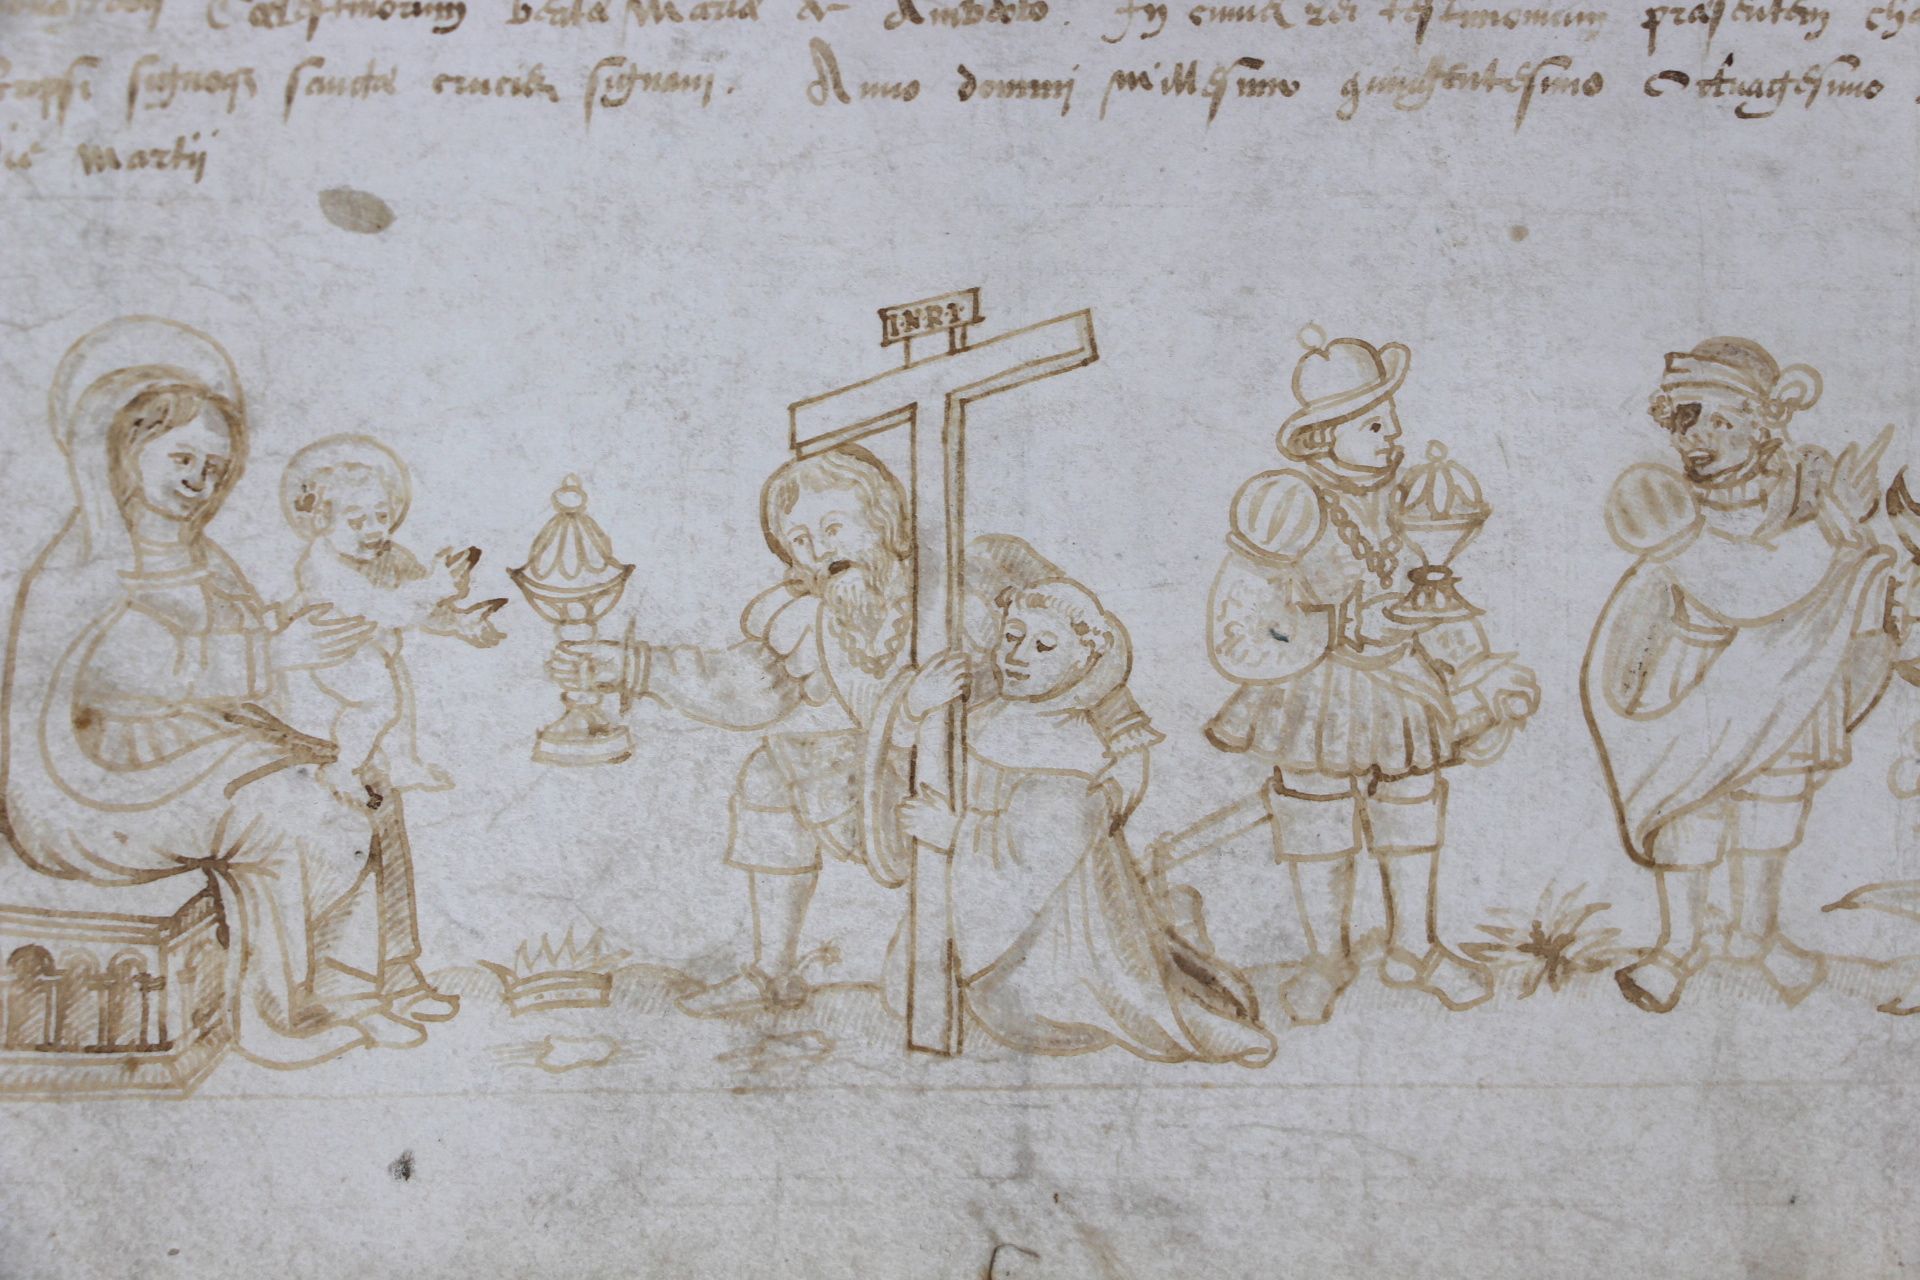 Cœlestinorum beatæ Mariæ de Amberto. In cuius rei testimonium præsentem
signoqȝ sanctæ crucis signavi. Anno domini millesimo quingentesimo Octuagesimo
die Martii
I·N·R·I·